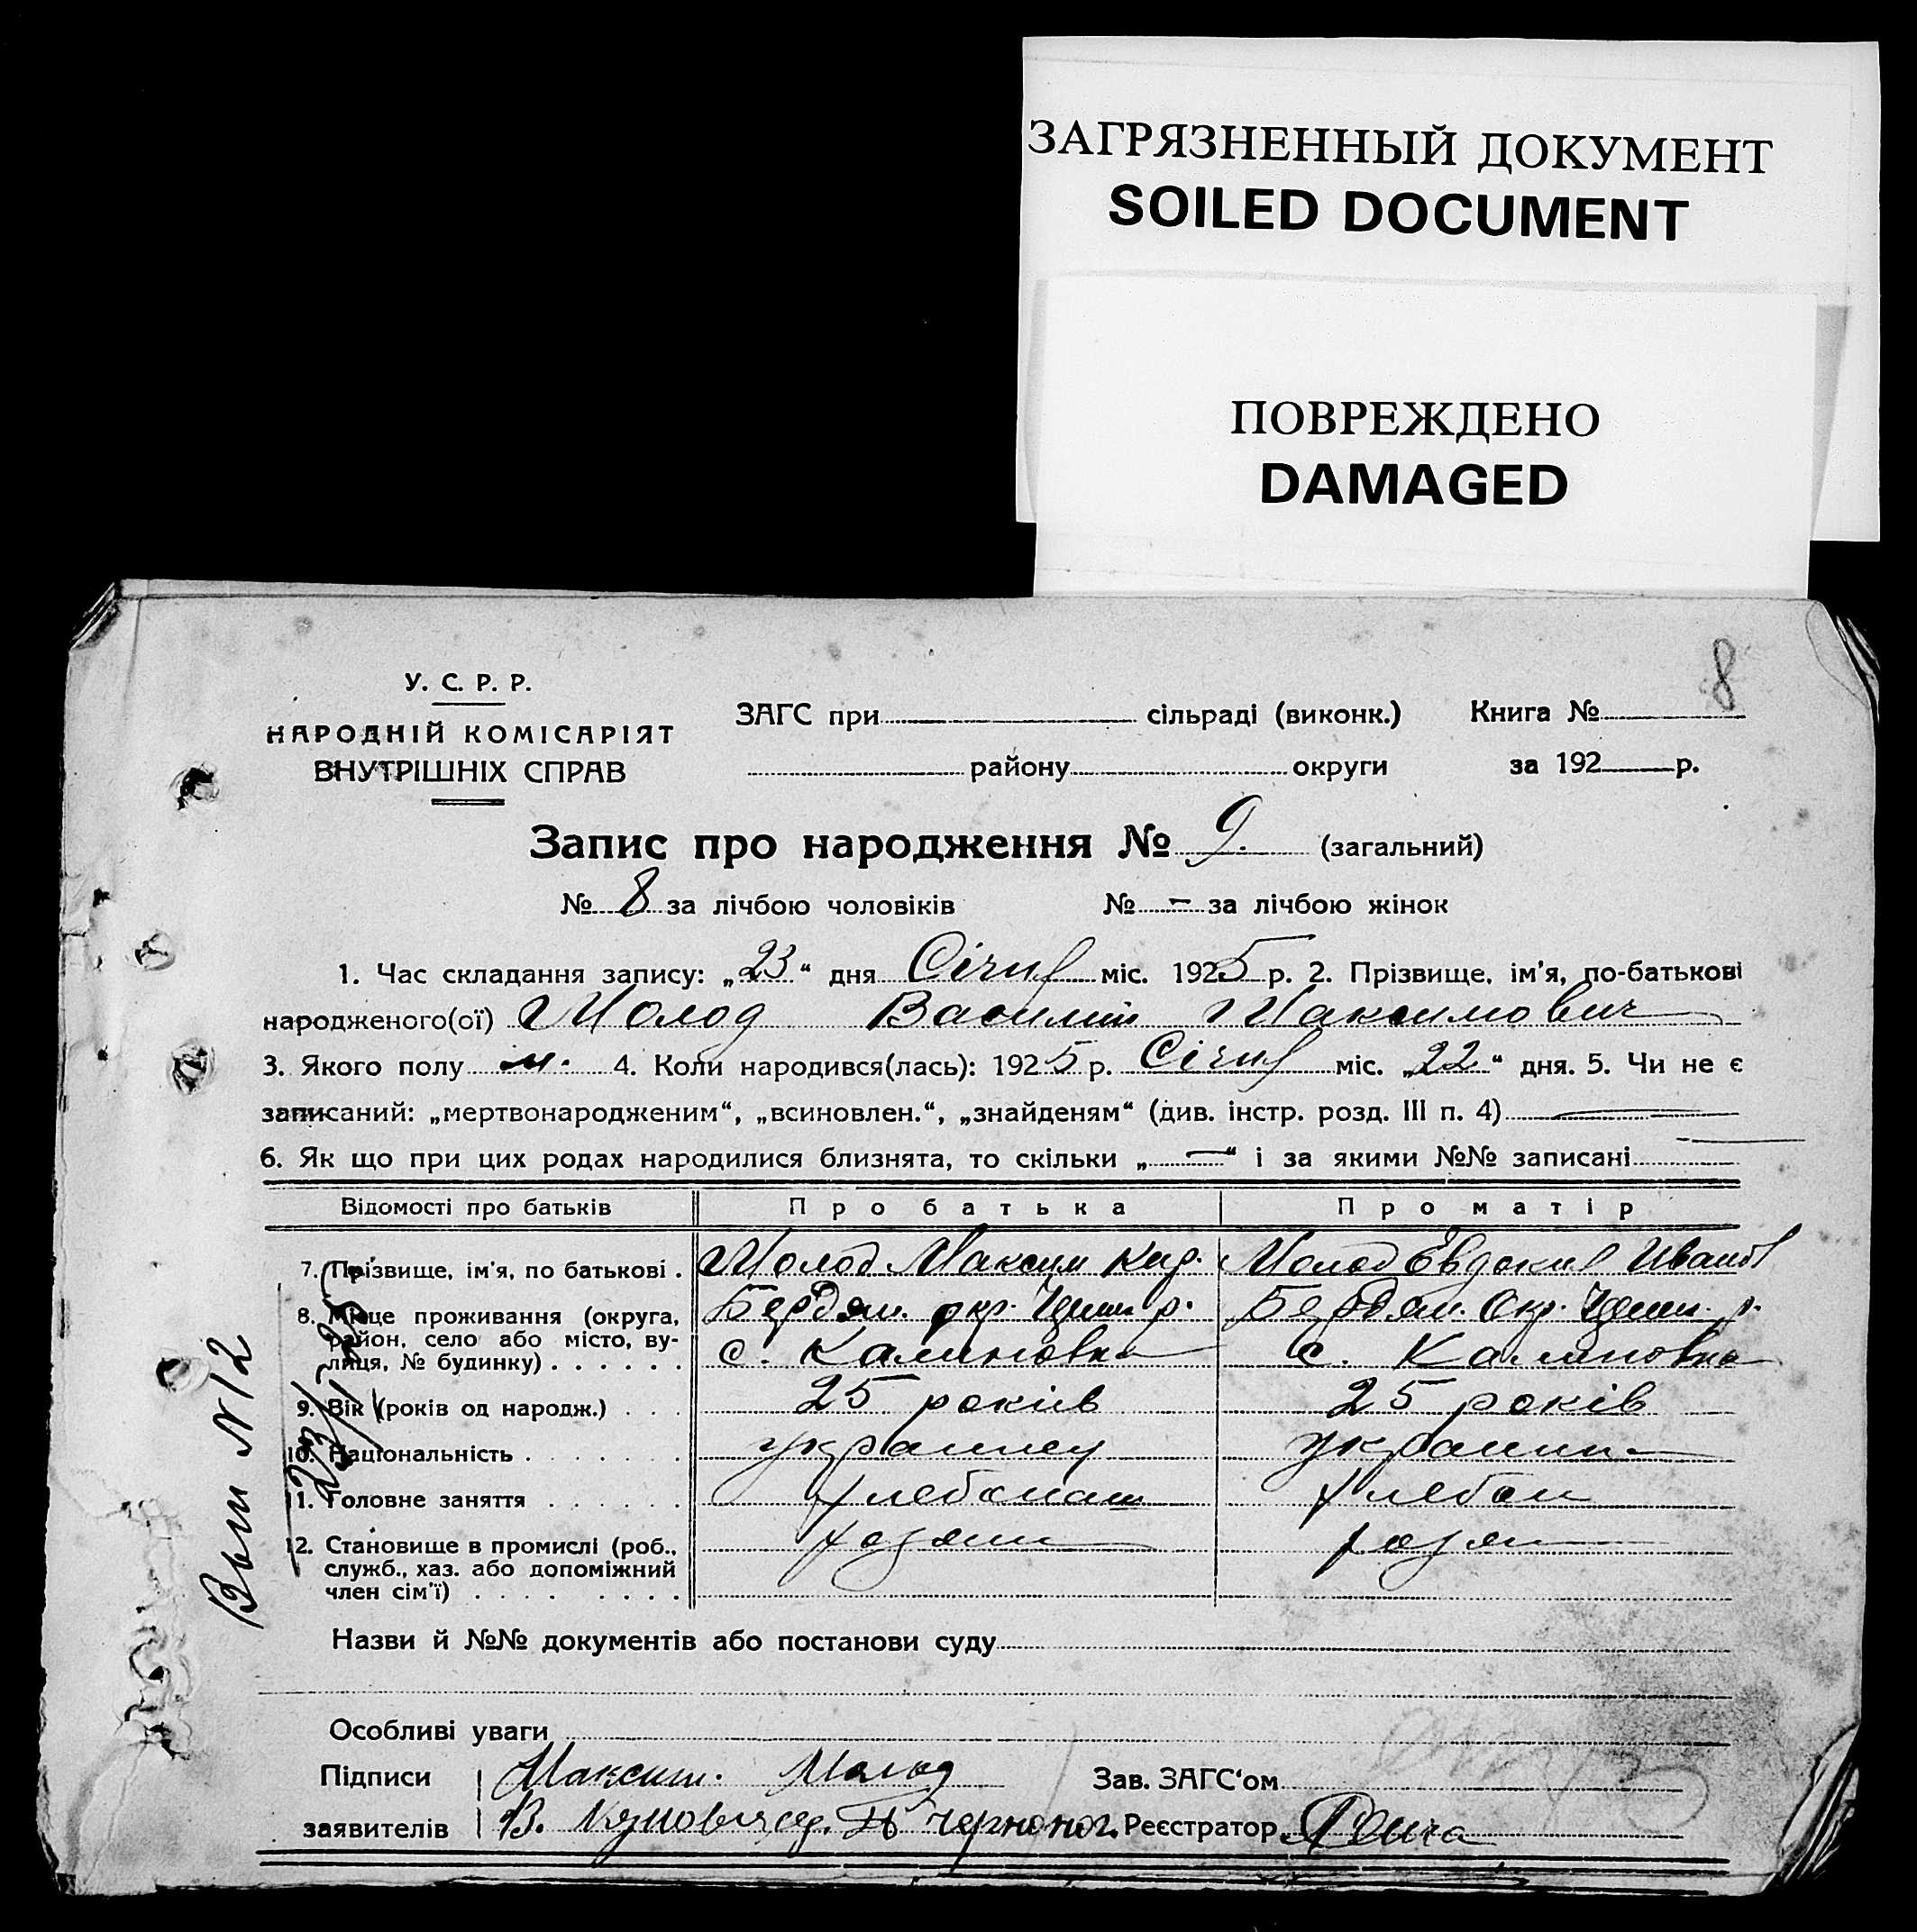 ЗАГРЯЗНЕННЫЙ ДОКУМЕНТ
SOILED DOCUMENT
ПОВРЕЖДЕНО
DAMAGED
8
У. С. Р. Р.
НАРОДНІЙ КОМІСАРІЯТ
ВНУТРІШНІХ СПРАВ
ЗАГС при сільраді (виконк.) Книга №
району округи за 192 р.
Запис про народження № 9. (загальний)
№ 8 за лічбою чоловіків № - за лічбою жінок
1. Час складання запису: „23“ дня Січня міс. 1925 р. 2. Прізвище, ім'я, по-батькові
народженого(ої) Молод Василий Максимович
3. Якого полу м. 4. Коли народився(лась): 1925 р. Січня міс. „22“ дня. 5. Чи не є
записаний: „мертвонародженим“, „всиновлен.“, „знайденям“ (див. інстр. розд. III п. 4) —
6. Як що при цих родах народилися близнята, то скільки „—“ і за якими №№ записані —
Відомості про батьків Про батька Про матір
7. Прізвище, ім'я, по батькові . Молод Максим Кир. Молод Евдокия Иванов
8. Місце проживання (округа, Бердян. окр. р. Бердян. Окр. р.
район, село або місто, ву-
лиця, № будинку) . . . . . . с. Калиновка с. Калиновка
9. Вік (років од народж.) . . . 25 років 25 років
10. Національність . . . . . . .
11. Головне заняття . . . . . .
12. Становище в промислі (роб.,
служб., хаз. або допоміжний
член сім'ї) . . . . . . . . .
Вып №12
Назви й №№ документів або постанови суду
Особливі уваги
Підписи Максим. Молод Зав. ЗАГС'ом
заявителів В. Реєстратор